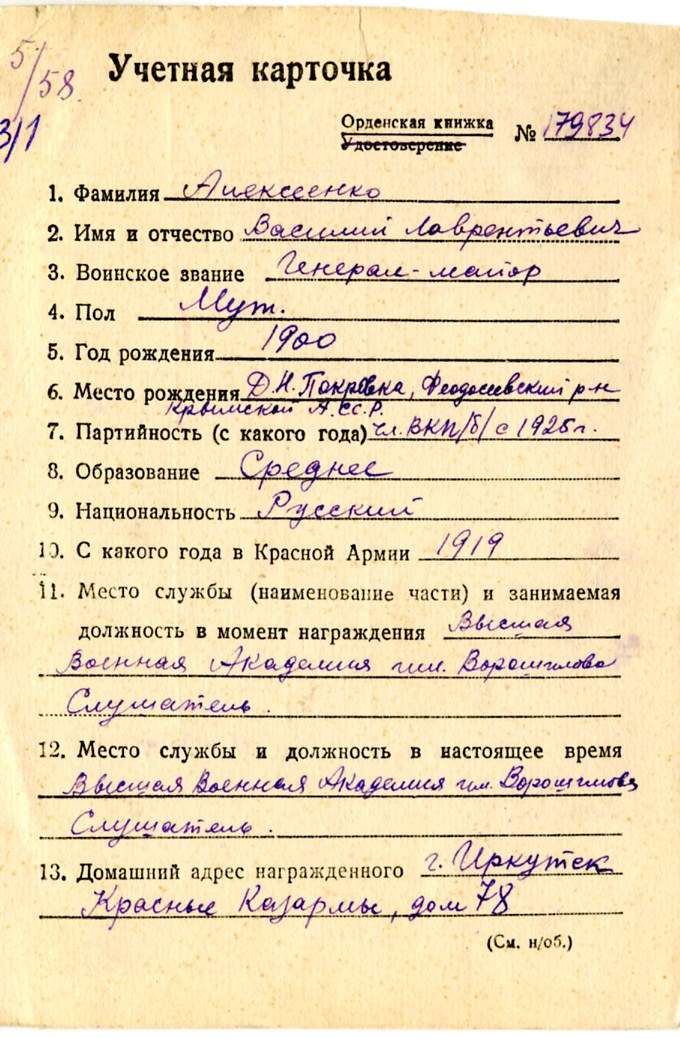 5/58
3/1
Учетная карточка
Орденская книжка
Удостоверение
№ 179834
1. Фамилия Алексеенко
2. Имя и отчество Василий Лаврентьевич
3. Воинское звание Генерал-майор
4. Пол Муж.
5. Год рождения 1900
6. Место рождения Д.Н. Покровка, Феодосевский р-н
Крымской А.ССР.
7. Партийность (с какого года) Чл. ВКП/б/ с 1925 г.
8. Образование Среднее
9. Национальность Русский
10. С какого года в Красной Армии 1919
11. Место службы (наименование части) и занимаемая
должность в момент награждения Высшая
Военная Академия им. Ворошилова
Слушатель.
12. Место службы и должность в настоящее время
Высшая Военная Академия им. Ворошилова
Слушатель.
13. Домашний адрес награжденного г. Иркутск
Красные Казармы, дом 78
(См. н/об.)